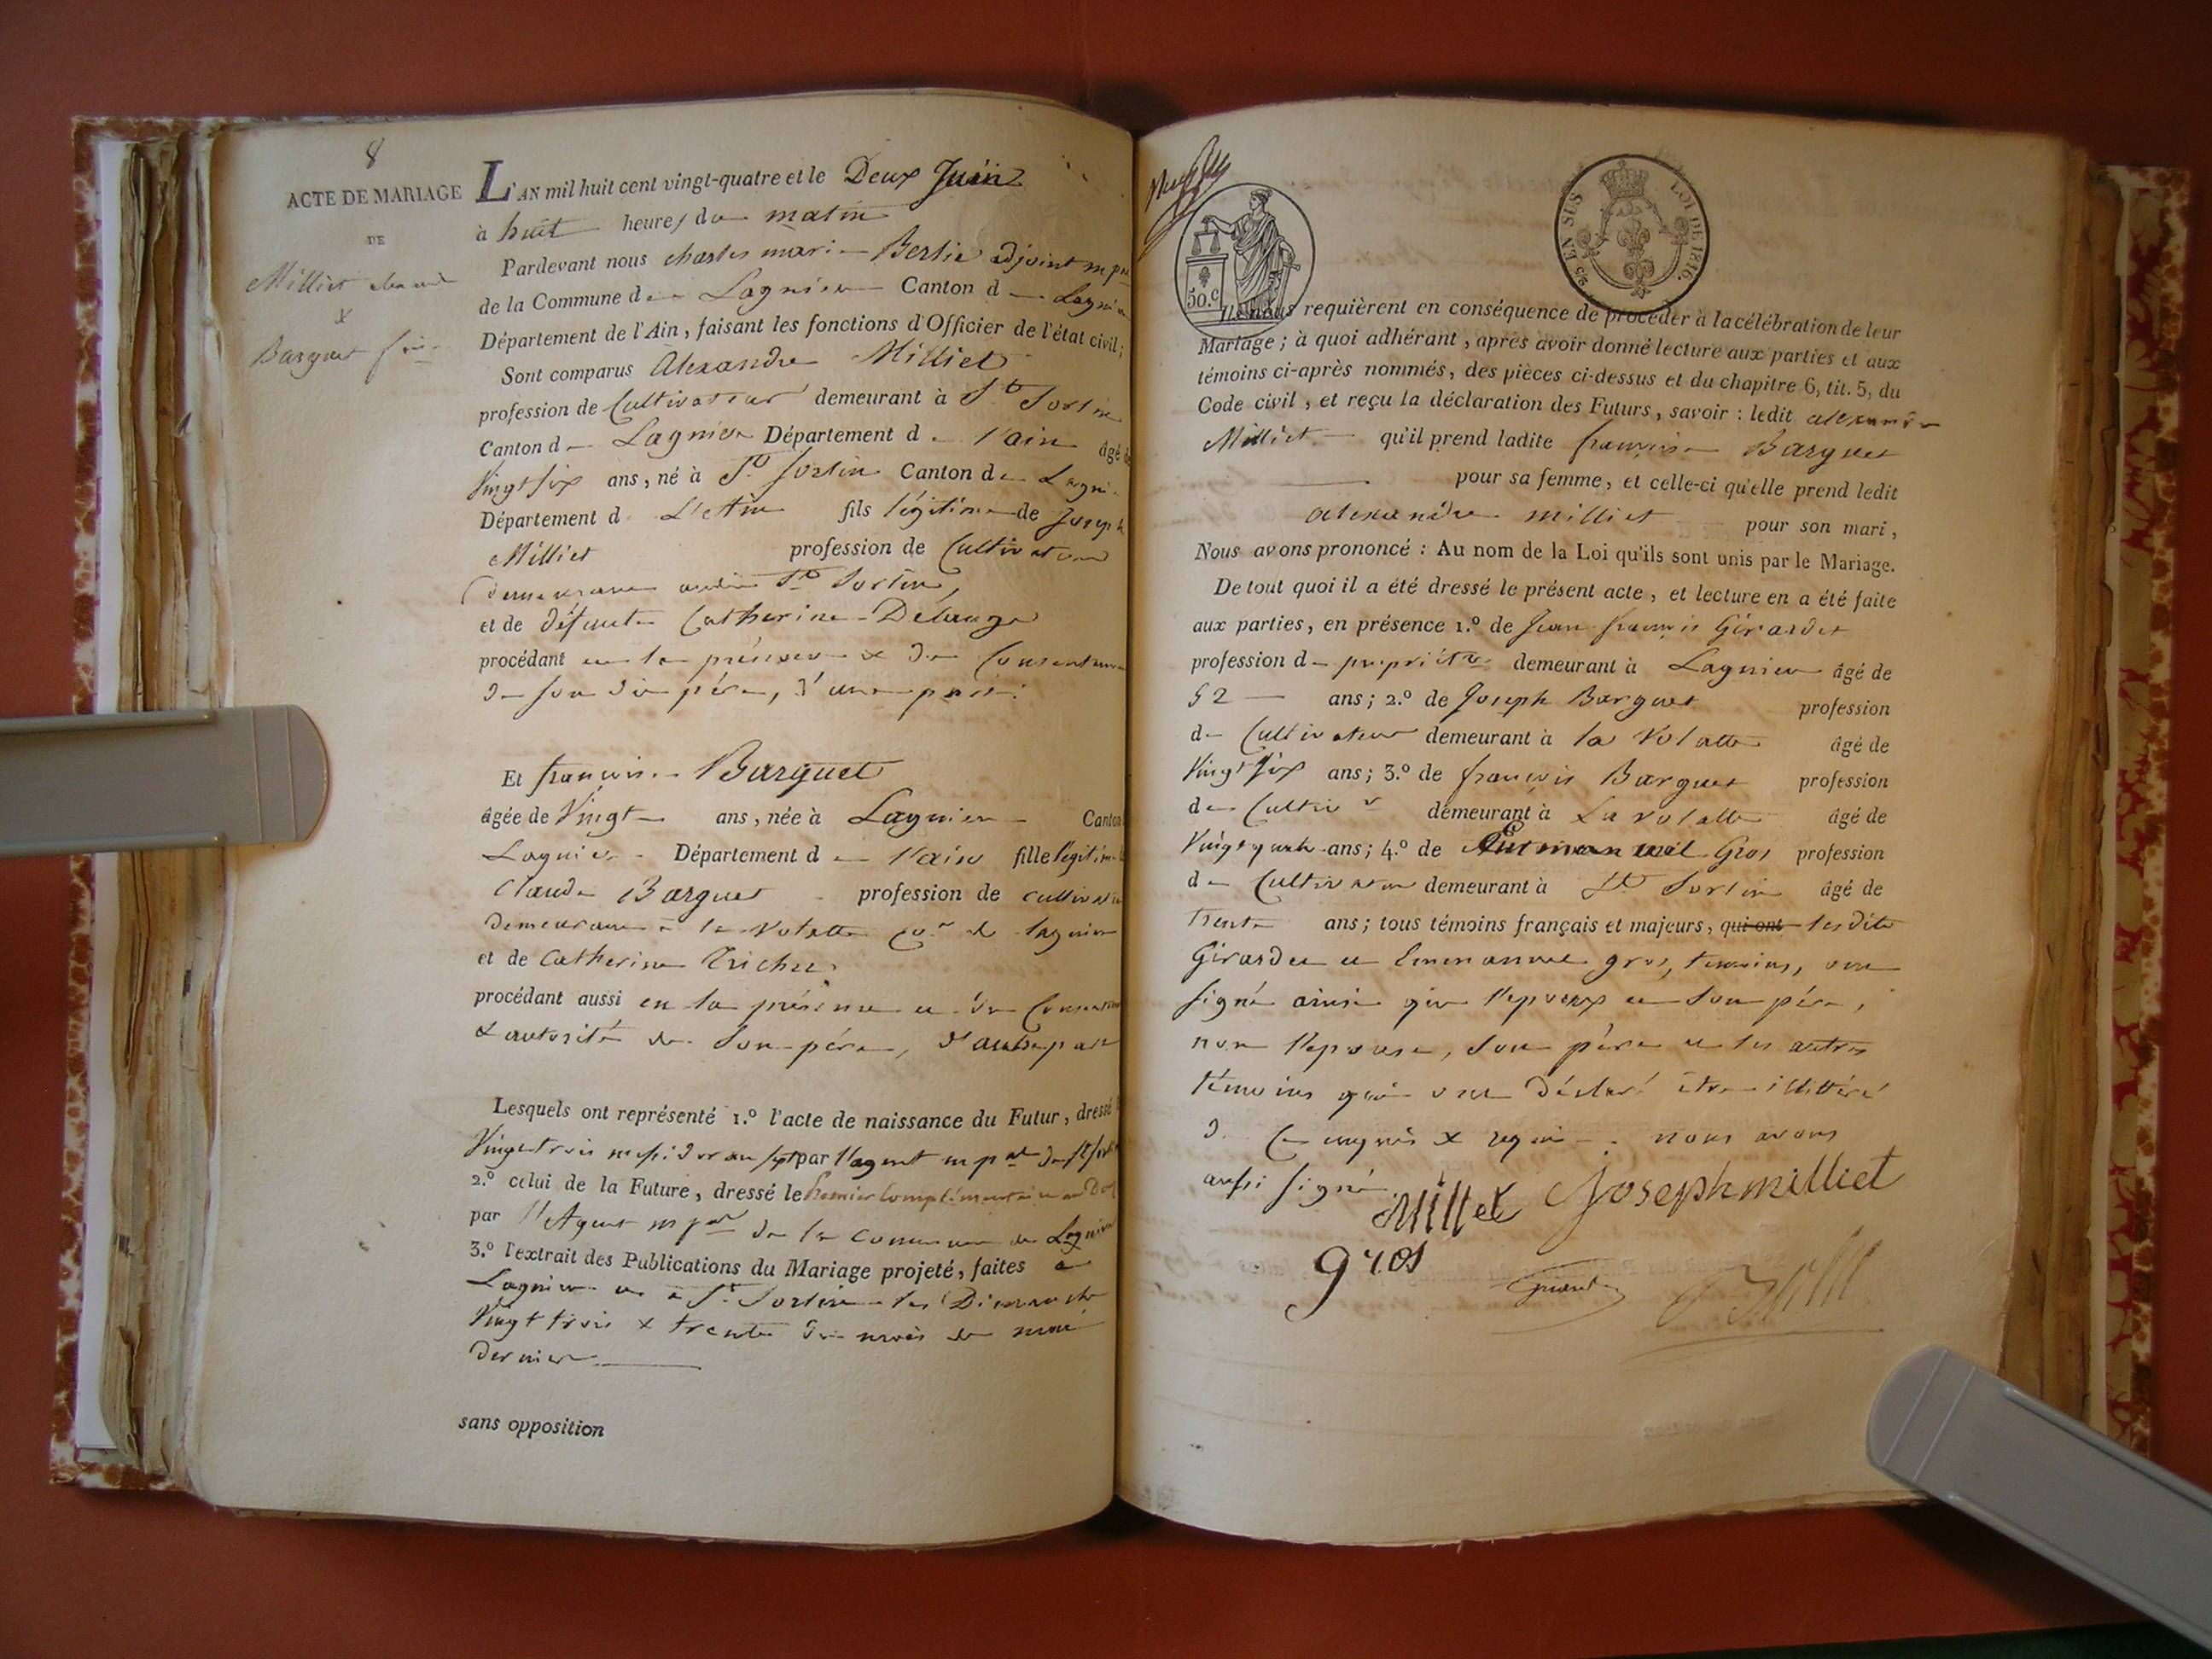 8
ACTE DE MARIAGE
DE
Milliet
x
Barquet
L'AN mil huit cent vingt-quatre et le Deux Juin
à huit heures du matin
Pardevant nous charles marie Berlie adjoint mpal
de la Commune de Lagnieu Canton de Lagnieu
Département de l'Ain, faisant les fonctions d'Officier de l'état civil;
Sont comparus Alexandre Milliet
profession de Cultivateur demeurant à St Sorlin
Canton de Lagnieu Département de l'ain âgé de
Vingt six ans, né à St Sorlin Canton de Lagni
Département de L'Ain fils légitime de Joseph
Milliet profession de Cultivateur
demeurant audit St Sorlin,
et de défunte Catherine Délange
procédant en la présence & du Consentement
de son dit père, d'une part.
Et françoise Barquet
âgée de Vingt ans, née à Lagnieu Canton
Lagnieu Département de l'ain fille légitime
Claude Barquet profession de cultivateur
demeurant à la Volatte Con de lagnieu
et de Catherine
procédant aussi en la présence et du Consentem
& autorité de Son père, d'autre part
Lesquels ont représenté 1.º l'acte de naissance du Futur, dressé
Vingt trois messidor an sept par l'agent mpal de St Sorlin
2.º celui de la Future, dressé le premier Complémentaire an
par l'Agent mpal de la Commune de Lagnieu
3.º l'extrait des Publications du Mariage projeté, faites à
Lagnieu et à St Sorlin les Dimanche
Vingt trois & trente du mois de mai
dernier
sans opposition
50.c
EN SUS
LOI DE 1816.
Ils nous requièrent en conséquence de procéder à la célébration de leur
Mariage; à quoi adhérant, après avoir donné lecture aux parties et aux
témoins ci-après nommés, des pièces ci-dessus et du chapitre 6, tit. 5, du
Code civil, et reçu la déclaration des Futurs, savoir: ledit alexandre
Milliet qu'il prend ladite françoise Barquet
pour sa femme, et celle-ci qu'elle prend ledit
alexandre milliet pour son mari,
Nous avons prononcé: Au nom de la Loi qu'ils sont unis par le Mariage.
De tout quoi il a été dressé le présent acte, et lecture en a été faite
aux parties, en présence 1.º de Jean françois Girardet
profession de propriétre demeurant à Lagnieu âgé de
52 ans; 2.º de Joseph Barquet profession
de Cultivateur demeurant à la Volatte âgé de
Vingt six ans; 3.º de françois Barquet profession
de Cultivr demeurant à La Volatte âgé de
Vingt quatre ans; 4.º de Emmanuel Gros profession
de Cultivateur demeurant à St Sorlin âgé de
trente ans; tous témoins français et majeurs, qui ont lesdits
Girardet et Emmanuel gros, témoins, ont
signé ainsi que l'epoux et son père,
non l'epouse, son père et les autres
témoins qui ont déclaré être illittéré
de Ce enquis & requis. nous avons
aussi signé
Millet Joseph milliet
gros
Girardet